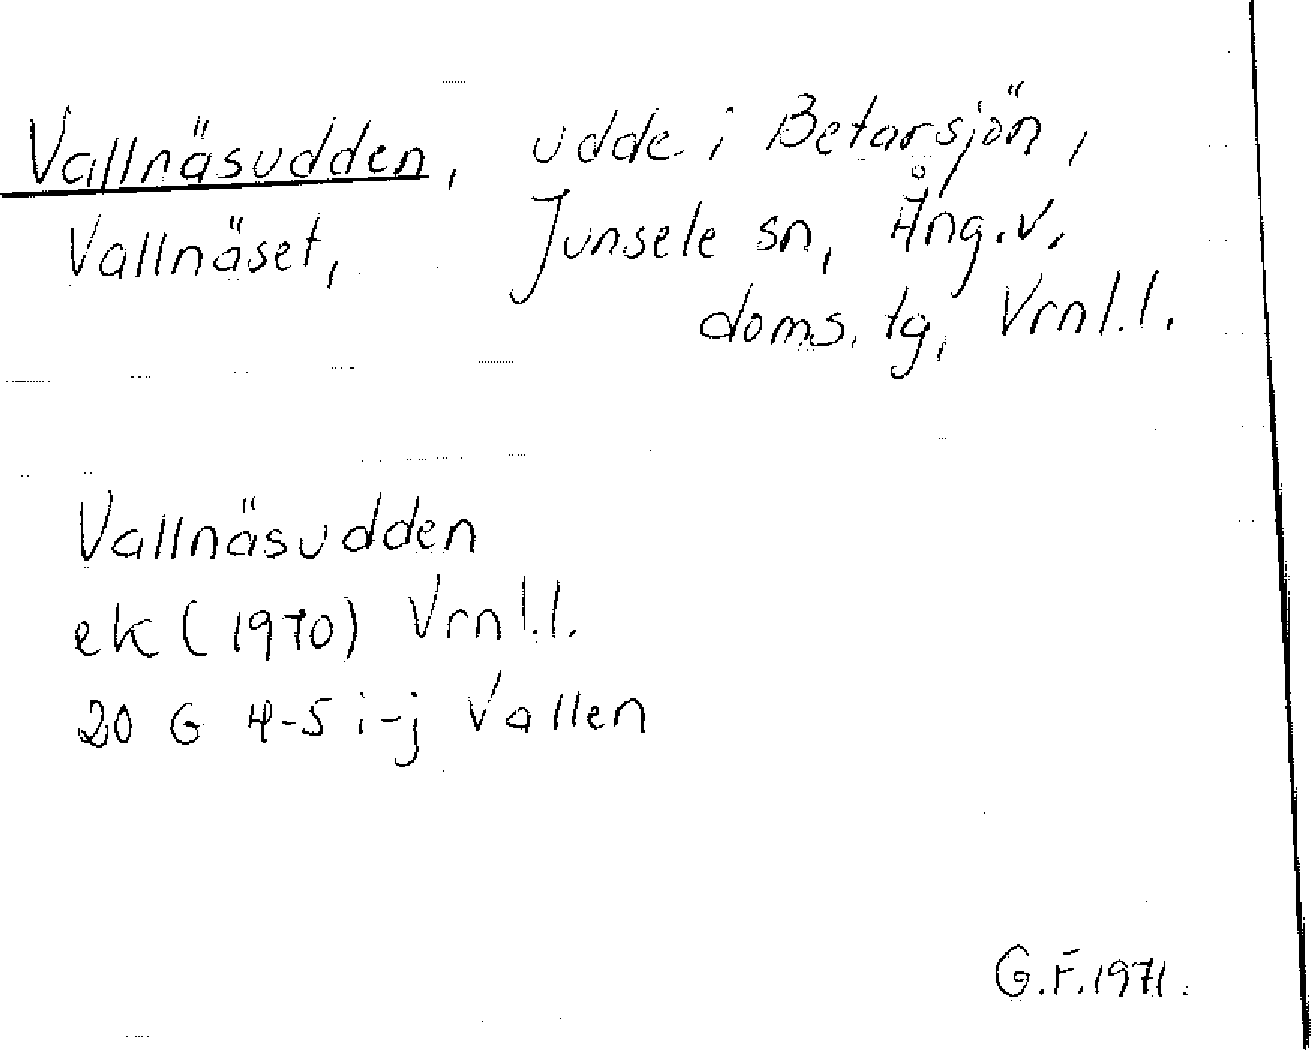 Vallnäsudden, udde i Betarsjön,
Vallnäset, Junsele sn, Ång.v.
doms. tg, Vrnl.l.
Vallnäsudden
ek (1970) Vrnl.l.
20 G 4-5 i-j Vallen
G.F.1971.